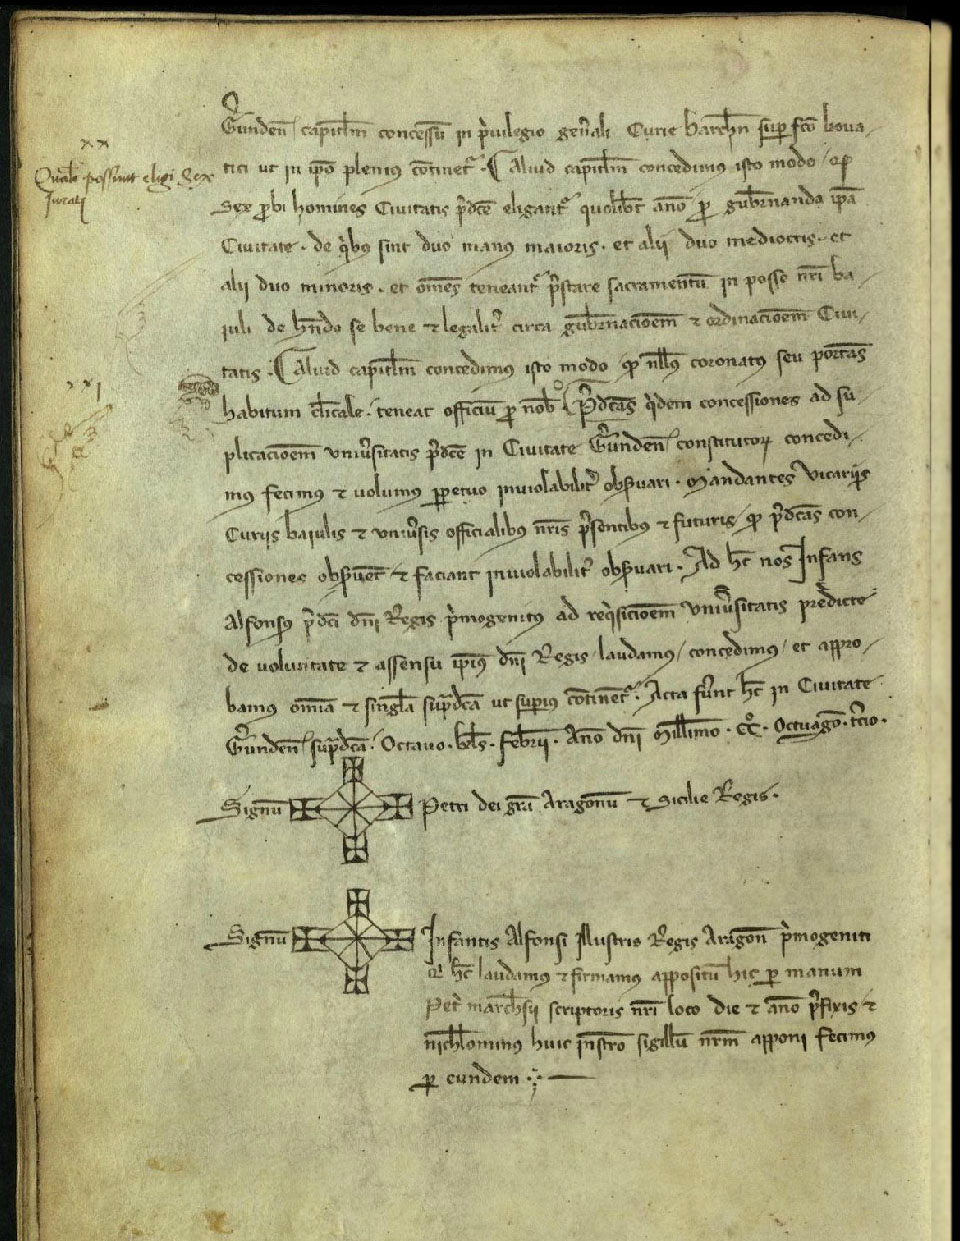 xx
Qualiter possint eligi Sex
Jurati
xxi
Gerunden capitlm concessu in privilegio gen̄ali Curie Barchn sup fco bova-
tici ut in ipo plenius continet̄. Caluid capitlm concedimus isto modo / qd
Sex probi homines Civitatis p̄dce eligant̄ quolibet anno pro gubernando ipa
Civitate. de qibus sint duo manus maioris. et alii duo mediocris. et
alii duo minoris. et om̄es teneant̄ p̄stare sacramentū in posse nri ba-
iuli de hn̄do se bene & legalit̄ circa gub̄nacioem & ordinacioem Civi-
tatis. Caluid capitlm concedimus isto modo qd nllus coronatus seu portans
habitum clicale. teneat officiū pro nob. P̄dcas qidem concessiones ad su-
plicacioem univ̄sitatis p̄dce in Civitate Gerunden constitutor concedi-
mus fecimus & volumus ppetuo inviolabilit̄ obs̄vari. Mandantes vicariis
Curiis baiulis & univ̄sis officialibus nris p̄sentibus & futuris / qd p̄dcas con-
cessiones obs̄vent & faciant inviolabilit̄ obs̄vari. Ad hec nos Infans
Alfonsus p̄dci dni Regis p̄mogenitus ad reqisicioem univ̄sitatis predicte
de voluntate & assensu ipius dni Regis laudamus / concedimus / et appro-
bamus omia & singla sup̄dca ut supius continet̄. Acta fūnt hec in Civitate
Gerunden sup̄dca. Octavo. kls. Febrii. Ano dni Millimo. CC. Octuago. t̄cio.
Signū Petri dei gra Aragonū & Sicilie Regis.
Signū Infantis Alfonsi Illustris Regis Aragon p̄mogeniti
q hec laudamus & firmamus appositū hic per manum
Pet̄ marchsii scriptoris nri loco die & ano p̄fixis &
nichlominus huic instro sigillū nrm apponi fecimus
per eundem.